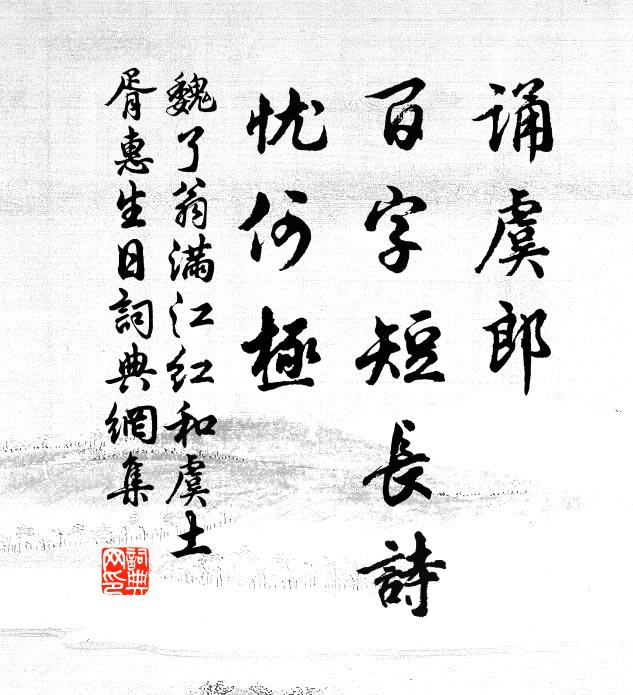 誦虞郎
百字短長詩
忧何極
魏了翁滿江红和虞士
胥惠生日詞典網集
詞典
网印